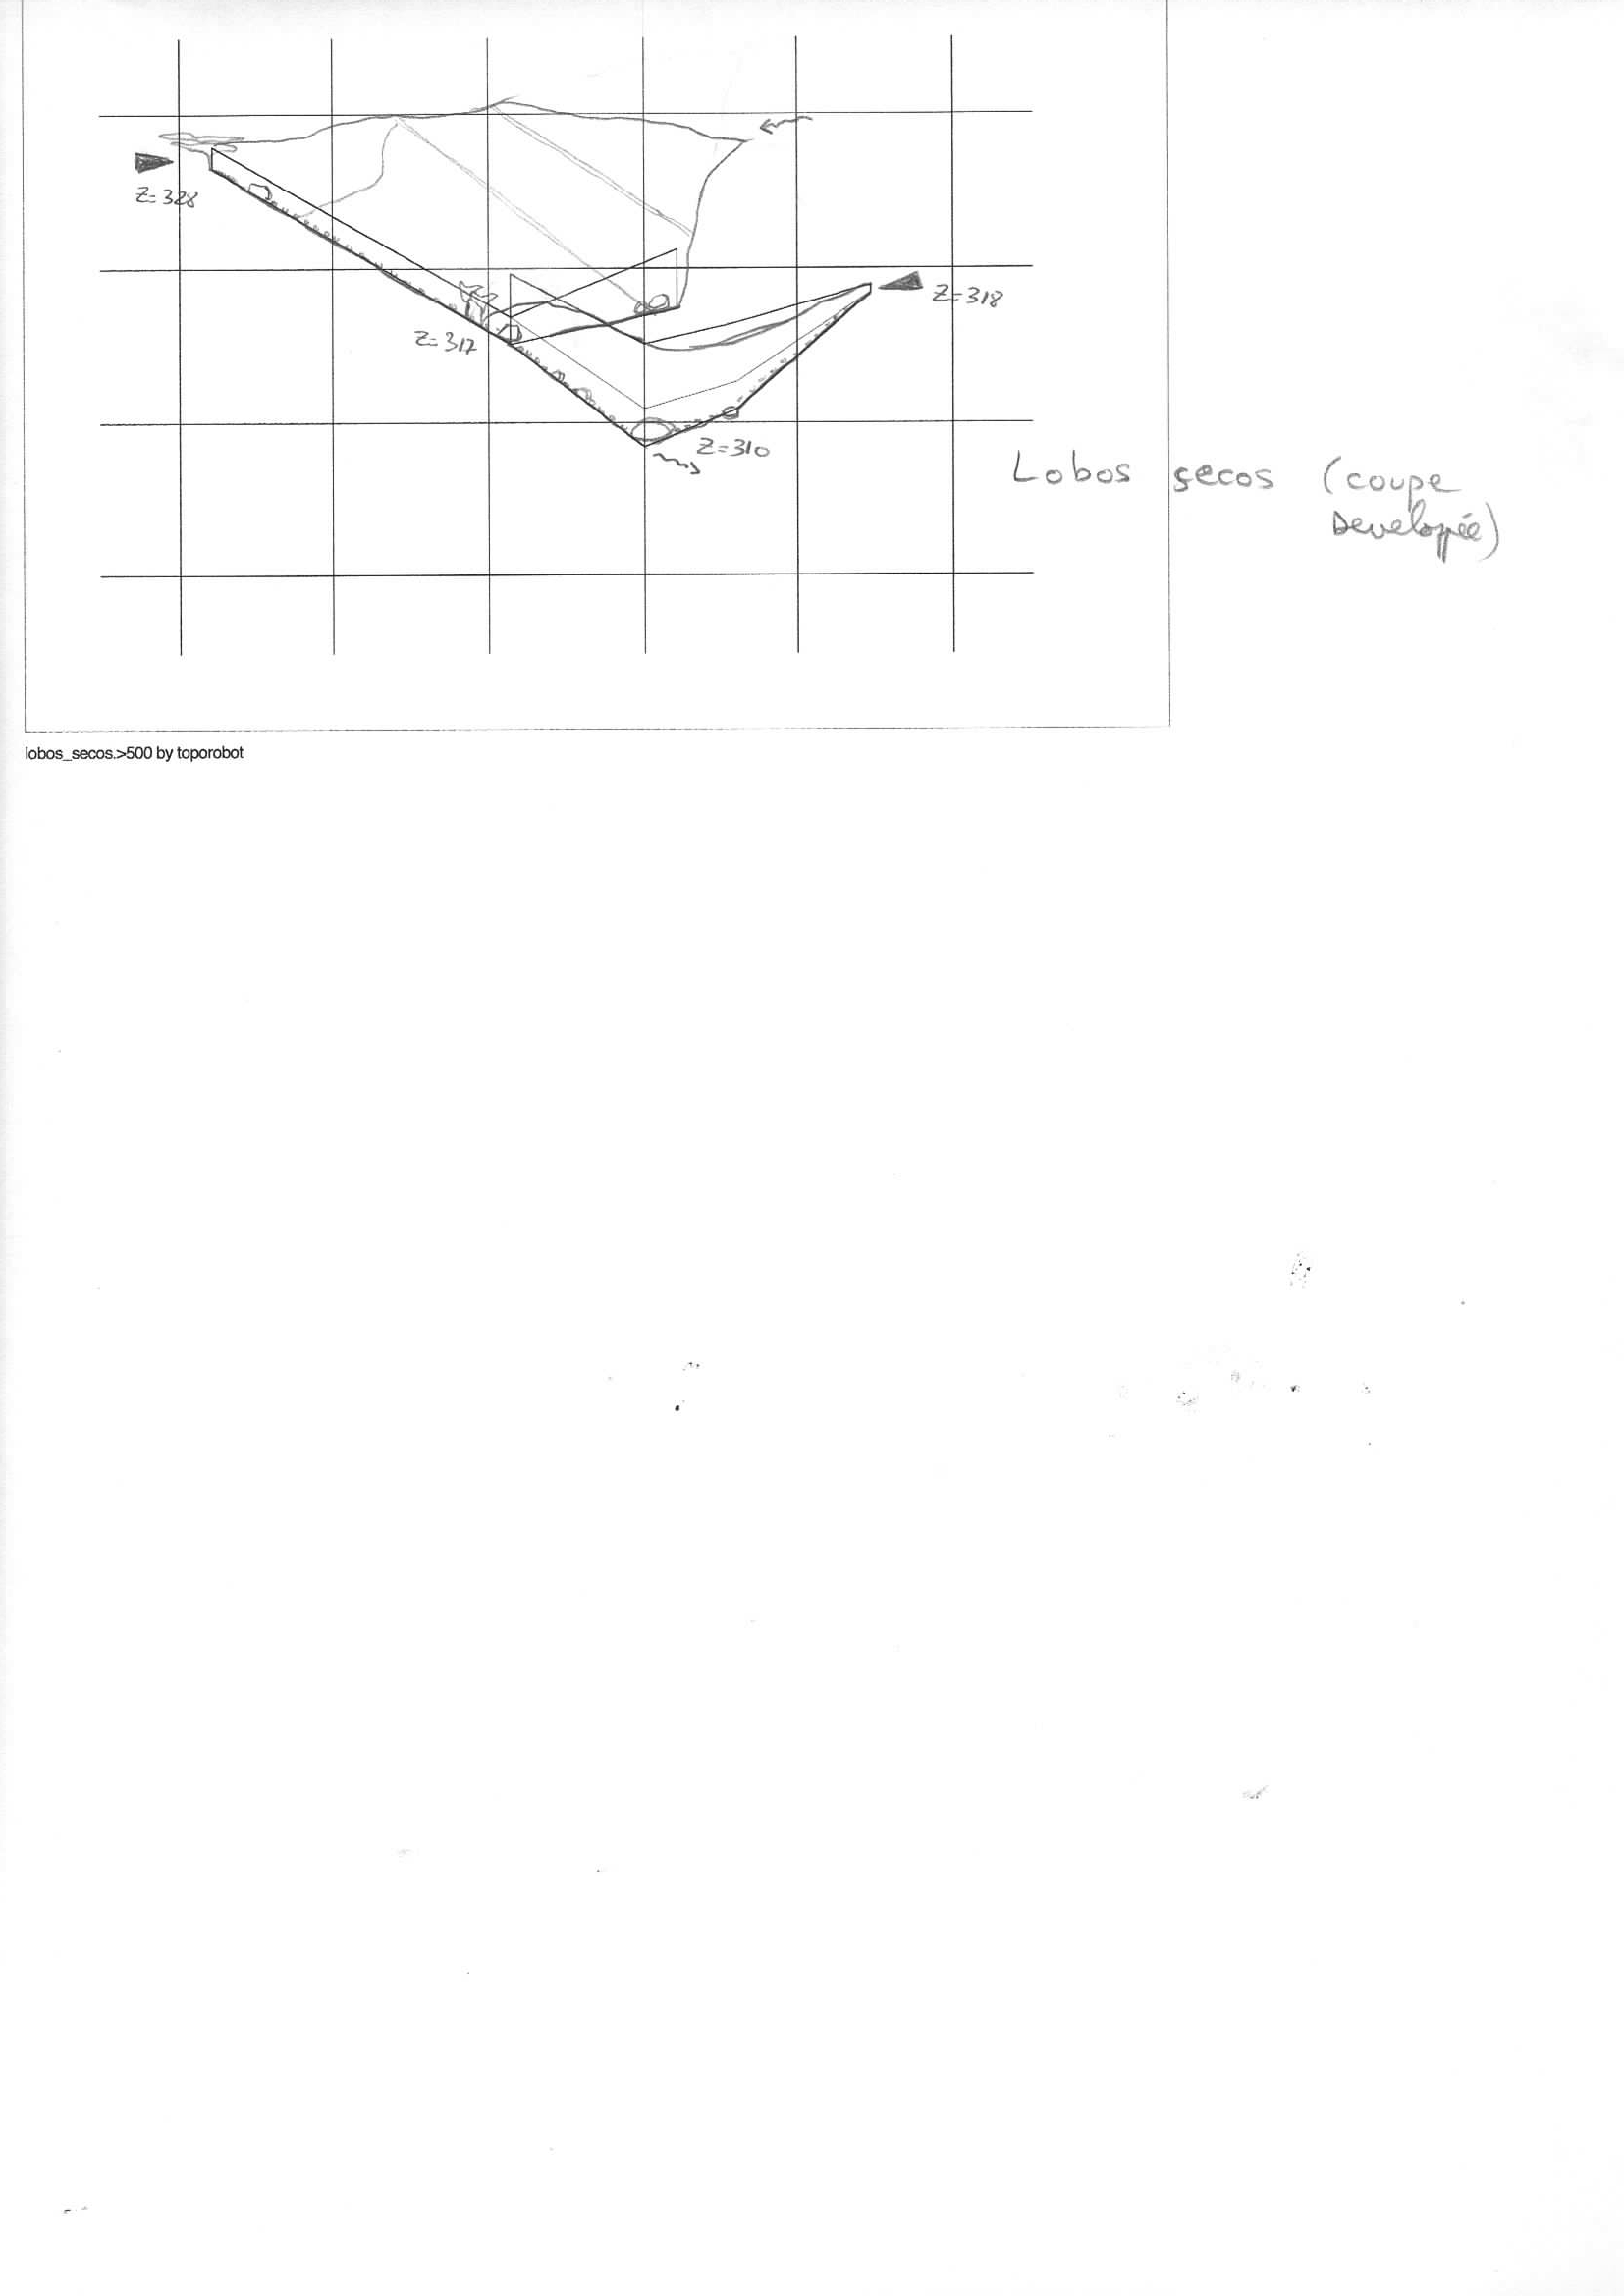 Z=328
Z=318
Z=317
Z=310
Lobos secos (coupe
Developpée)
lobos_secos.>500 by toporobot